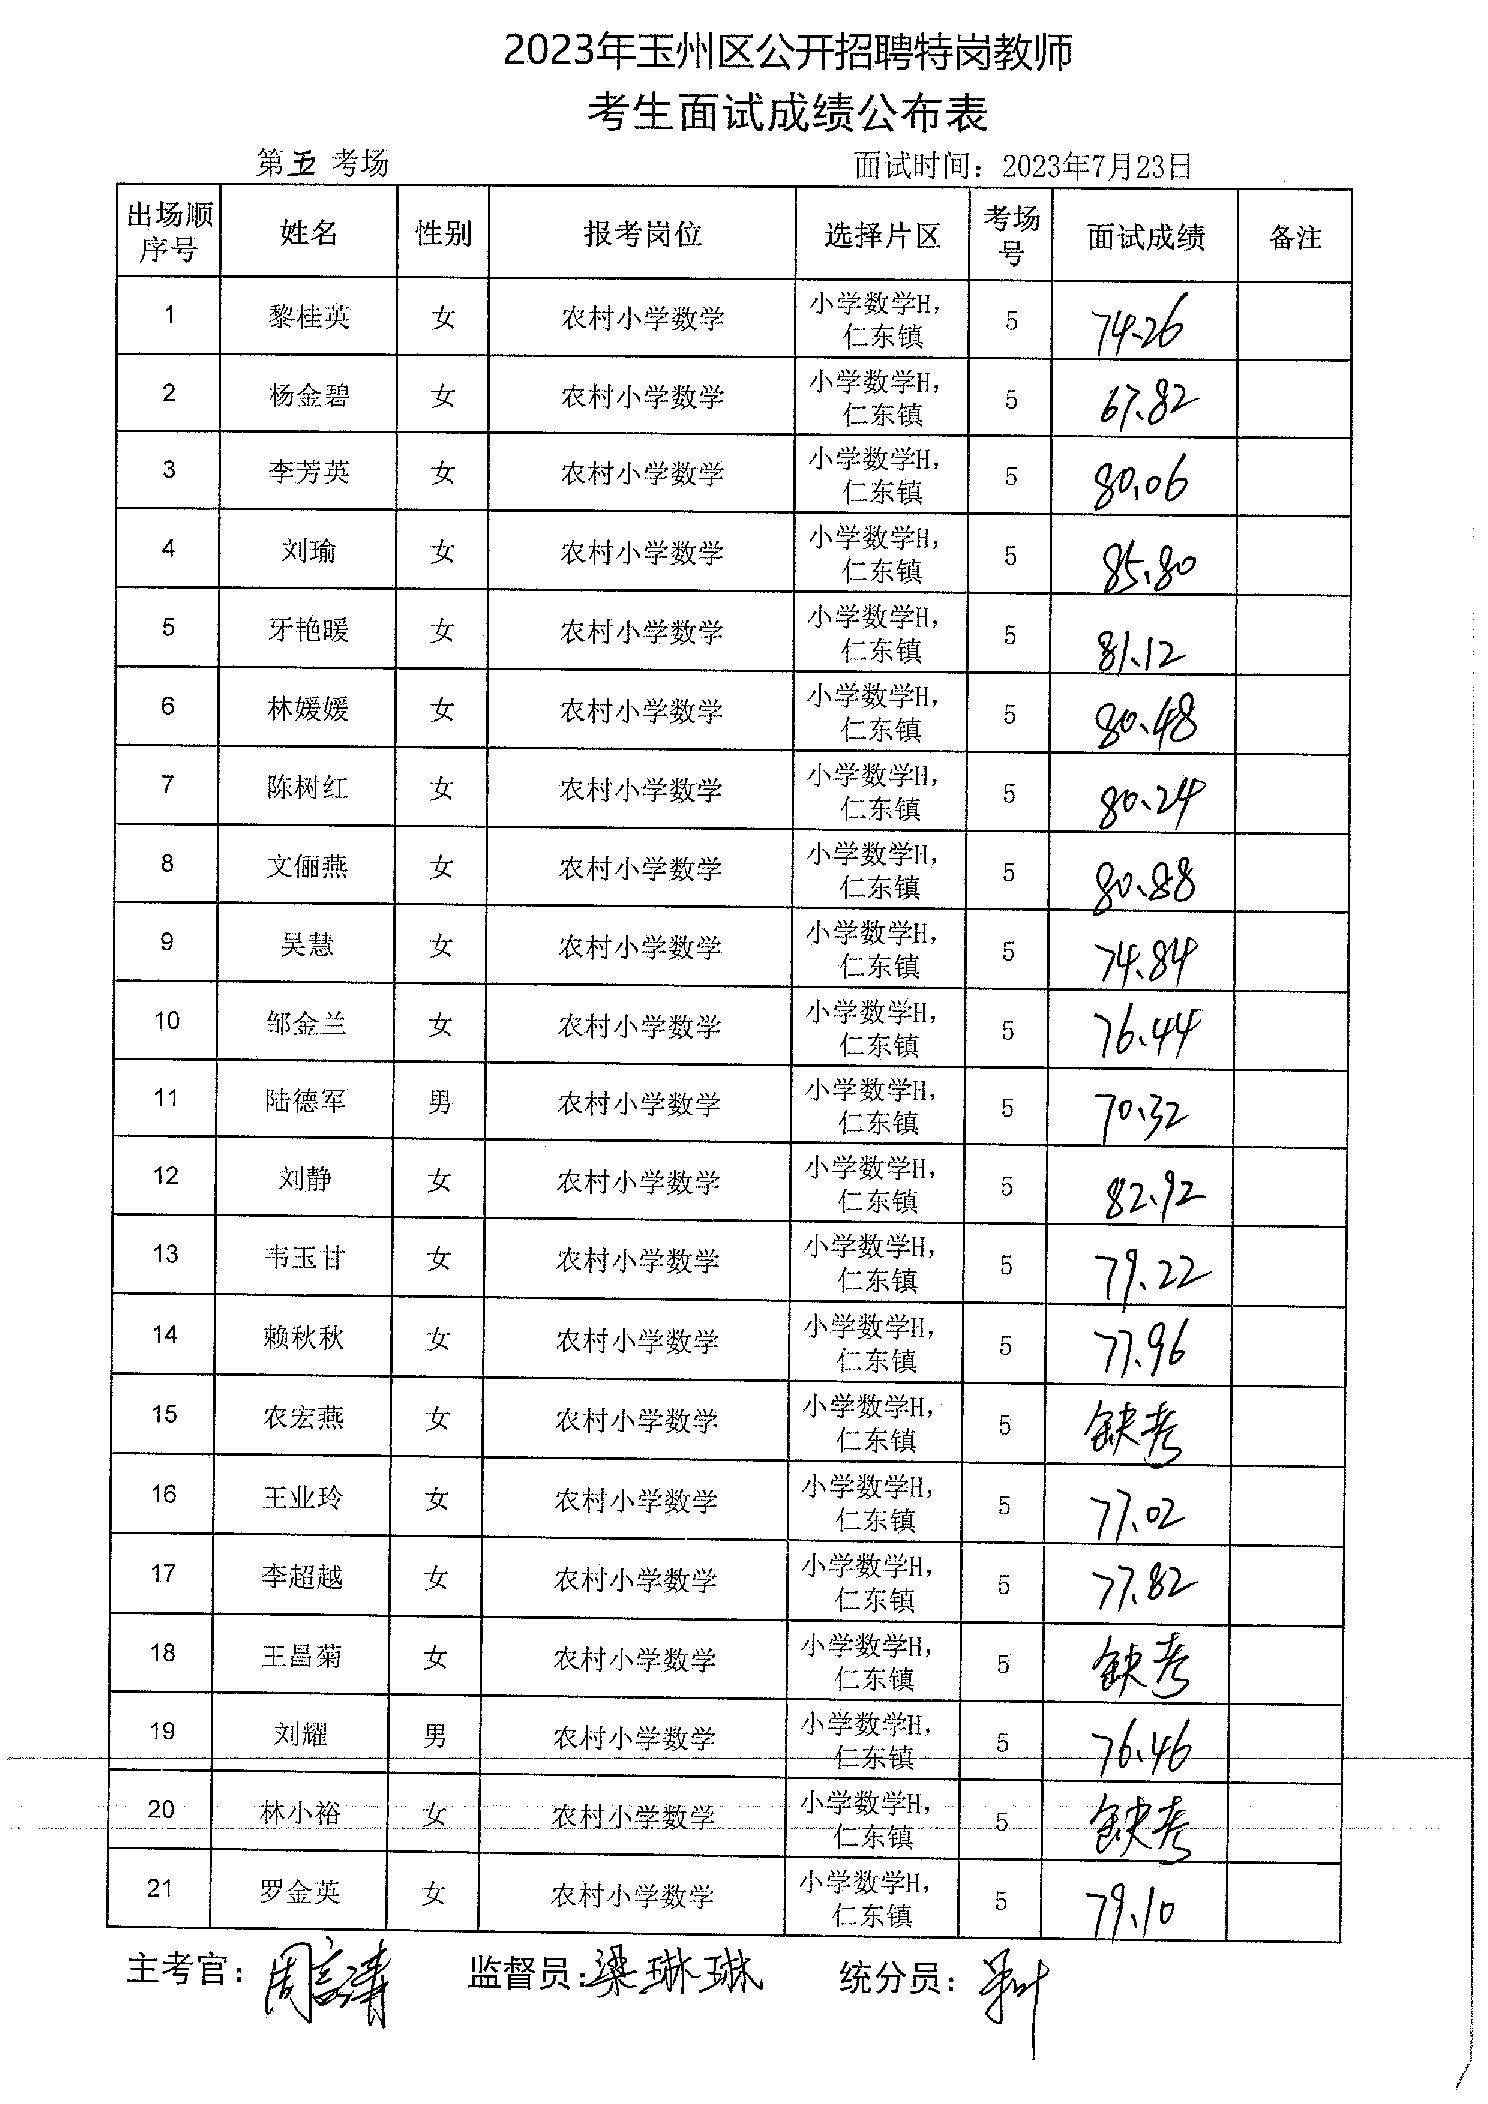 2023年玉州区公开招聘特岗教师
考生面试成绩公布表
第五考场 面试时间：2023年7月23日
出场顺序号 姓名 性别 报考岗位 选择片区 考场号 面试成绩 备注
1 黎桂英 女 农村小学数学 小学数学H，仁东镇 5 74.26
2 杨金碧 女 农村小学数学 小学数学H，仁东镇 5 67.82
3 李芳英 女 农村小学数学 小学数学H，仁东镇 5 80.06
4 刘瑜 女 农村小学数学 小学数学H，仁东镇 5 85.80
5 牙艳暖 女 农村小学数学 小学数学H，仁东镇 5 81.12
6 林媛媛 女 农村小学数学 小学数学H，仁东镇 5 80.48
7 陈树红 女 农村小学数学 小学数学H，仁东镇 5 80.24
8 文俪燕 女 农村小学数学 小学数学H，仁东镇 5 80.88
9 吴慧 女 农村小学数学 小学数学H，仁东镇 5 74.84
10 邹金兰 女 农村小学数学 小学数学H，仁东镇 5 76.44
11 陆德军 男 农村小学数学 小学数学H，仁东镇 5 70.32
12 刘静 女 农村小学数学 小学数学H，仁东镇 5 82.92
13 韦玉甘 女 农村小学数学 小学数学H，仁东镇 5 79.22
14 赖秋秋 女 农村小学数学 小学数学H，仁东镇 5 77.96
15 农宏燕 女 农村小学数学 小学数学H，仁东镇 5 缺考
16 王业玲 女 农村小学数学 小学数学H，仁东镇 5 77.02
17 李超越 女 农村小学数学 小学数学H，仁东镇 5 77.82
18 王昌菊 女 农村小学数学 小学数学H，仁东镇 5 缺考
19 刘耀 男 农村小学数学 小学数学H，仁东镇 5 76.46
20 林小裕 女 农村小学数学 小学数学H，仁东镇 5 缺考
21 罗金英 女 农村小学数学 小学数学H，仁东镇 5 79.10
主考官： 监督员：梁琳琳 统分员：